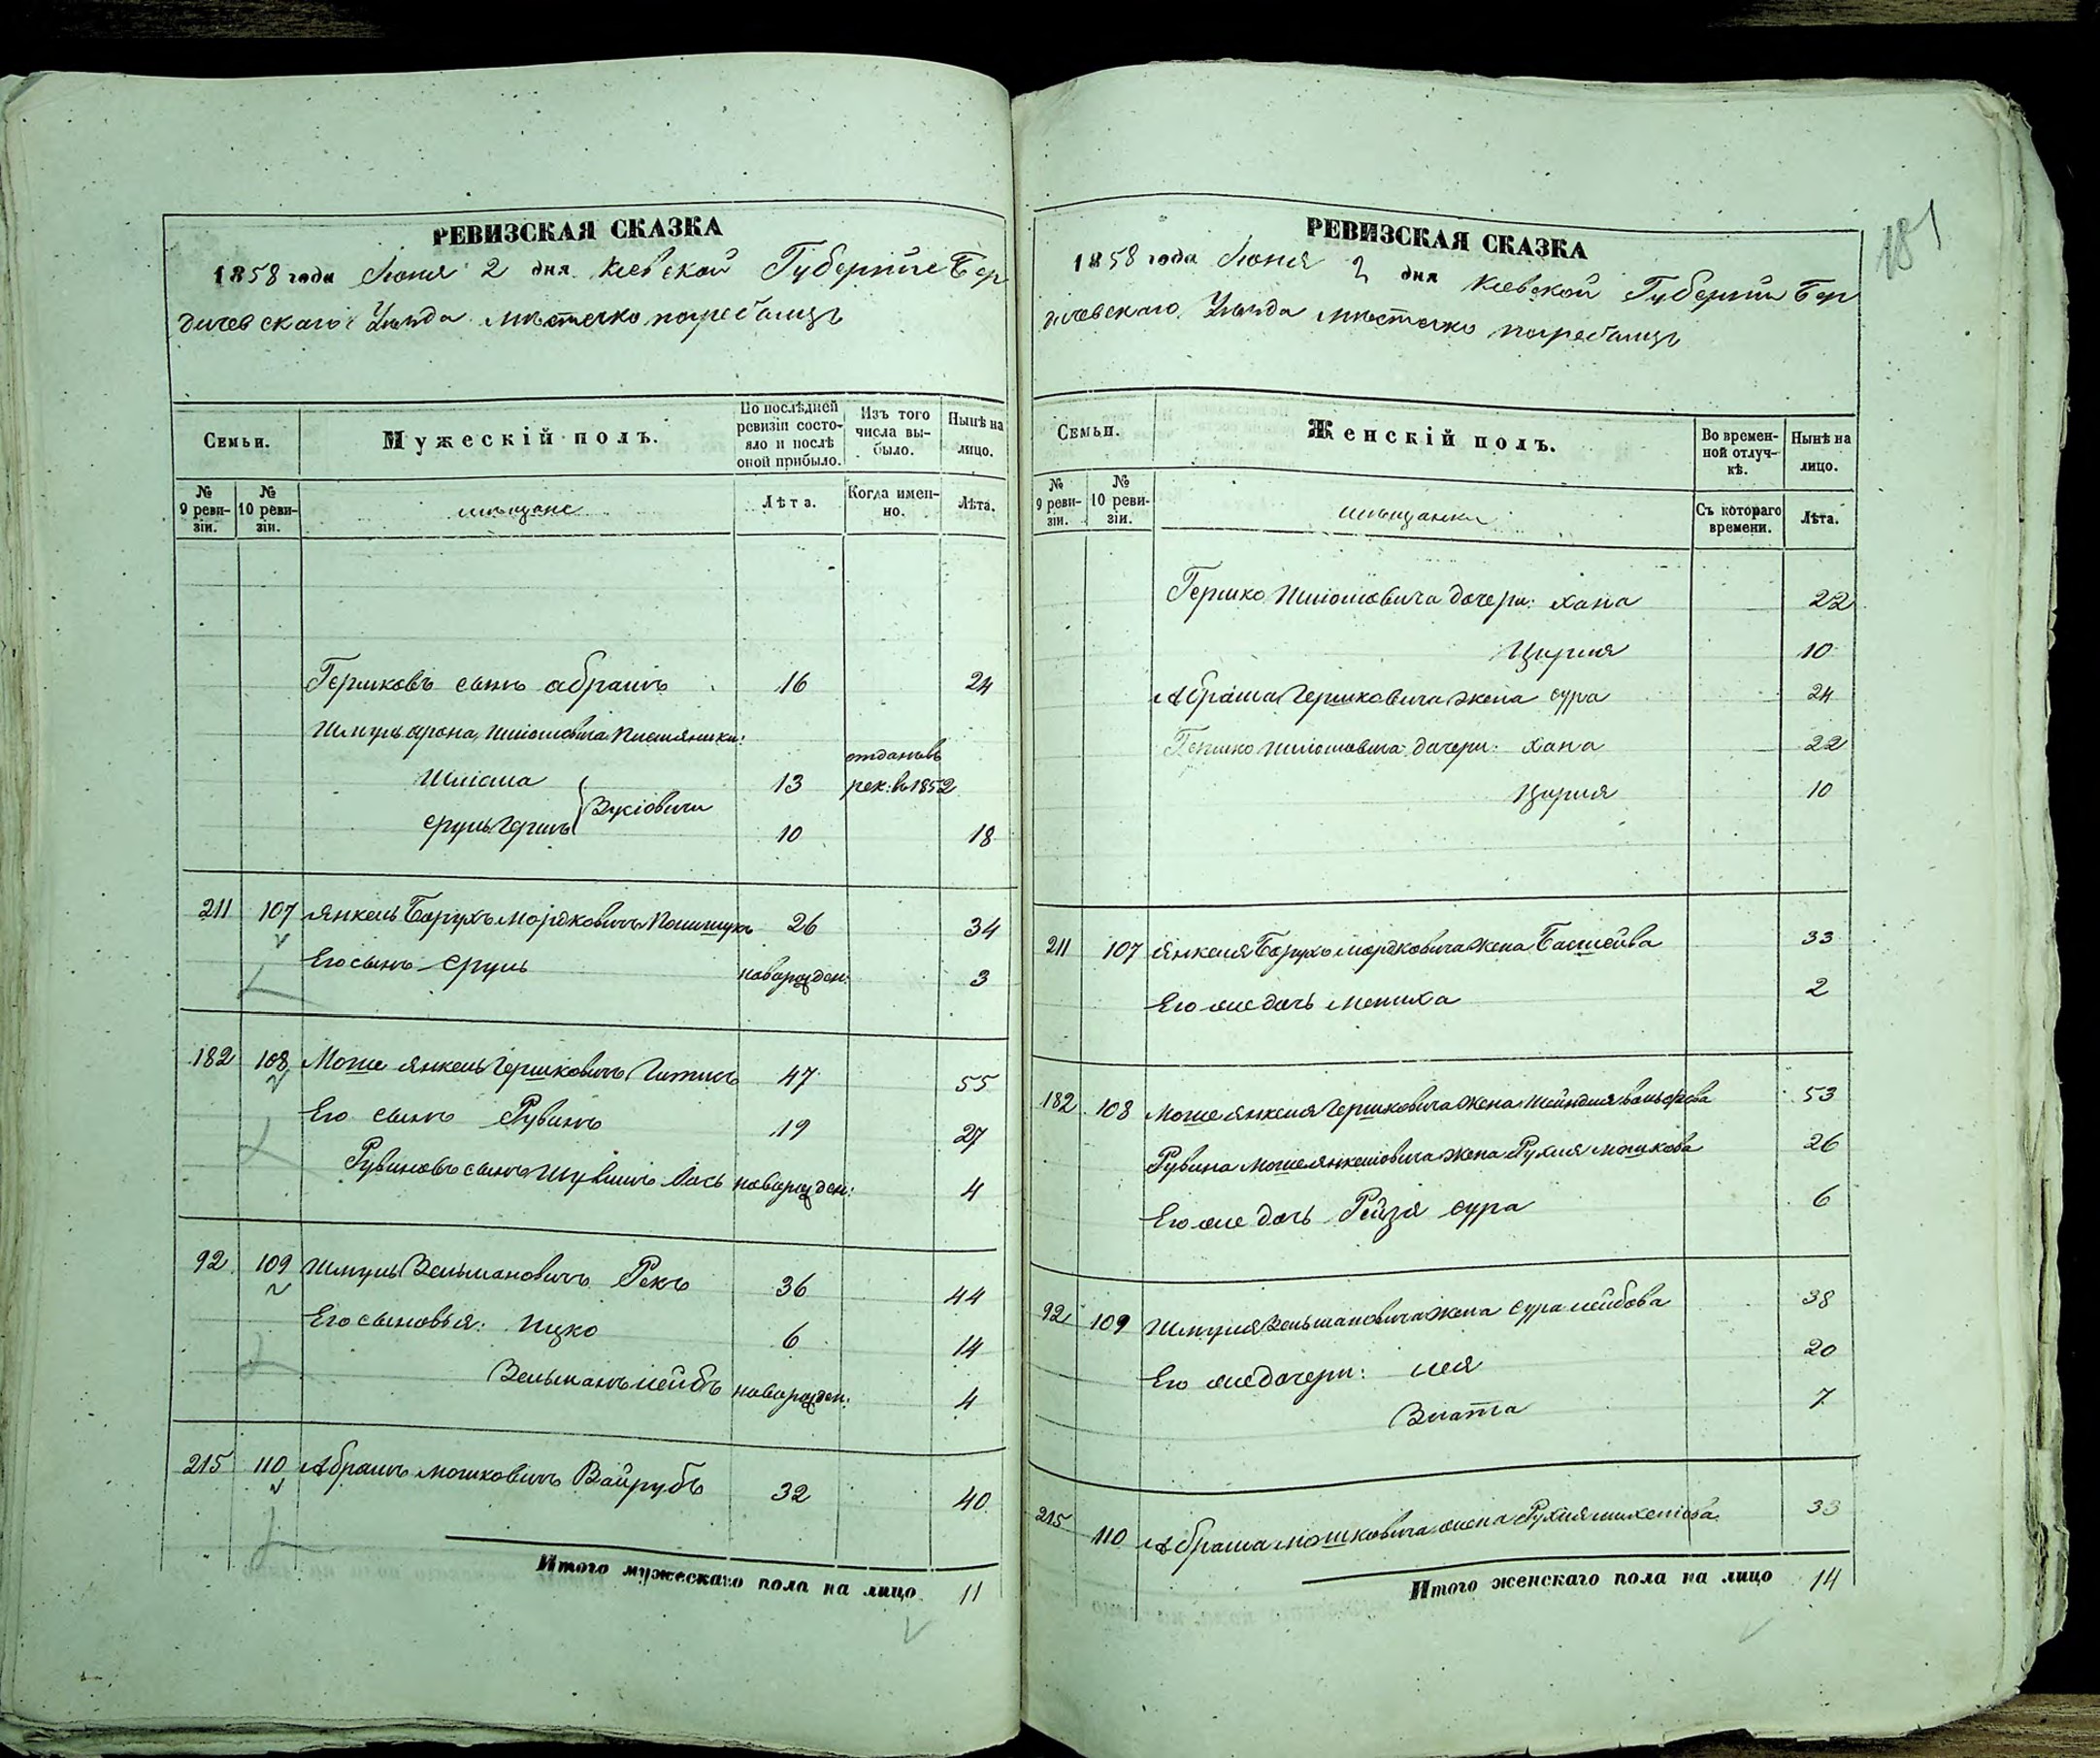 РЕВИЗСКАЯ СКАЗКА
1858 года Июня 2 дня Киевской Губернии Бер
дичевскаго Уѣзда мѣстечко погребыщъ
Семьи.
Мужескій полъ.
По послѣдней ревизіи состояло и послѣ оной прибыло.
Изъ того числа выбыло.
Нынѣ на лицо.
№ 9 ревизіи.
№ 10 ревизіи.
мѣщане
Лѣта.
Когда именно.
Лѣта.
Гершковъ сынъ абрамъ 16 24
Шмуль арона Шліомовича Племяники:
Шліома 13 отданъ въ рек: въ 1852
Зусіовичи
Сруль Гершъ 10 18
211 107 Янкель Борухъ Мордковичъ Полищукъ 26 34
Его сынъ Сруль новорожден: 3
182 108 Моше Янкель Гершковичъ 47 55
Его сынъ Рувинъ 19 27
Рувиновъ сынъ новорожден: 4
92 109 Шмуль Зельмановичъ Рекъ 36 44
Его сыновья: Ицко 6 14
Зельманъ лейбъ новорожден: 4
215 110 Абрамъ мошковичъ Вайрубъ 32 40
Итого мужескаго пола на лицо 11
181
РЕВИЗСКАЯ СКАЗКА
1858 года Июня 2 дня Киевской Губернии Бер
дичевскаго Уѣзда мѣстечко погребыщъ
Семьи.
Женскій полъ.
Во временной отлучкѣ.
Нынѣ на лицо.
№ 9 ревизіи.
№ 10 ревизіи.
мѣщанки
Съ котораго времени.
Лѣта.
Гершко Шліомовича дочери: хана 22
Цирля 10
Абрама Гершковича жена сура 24
Гершко Шліомовича дочери: хана 22
Цирля 10
211 107 Янкеля Борухо мордковича жена Басшейва 33
Его же дочь 2
182 108 Моше Янкеля Гершковича жена Шейндля вольфова 53
Рувина мошеянкелiовича жена Рухля мошкова 26
Его же дочь Рейзя сура 6
92 109 Шмуля Зельмановича жена сура лейбова 38
Его же дочери: лея 20
Злата 7
215 110 Абрама мошковича жена Рухля 33
Итого женскаго пола на лицо 14